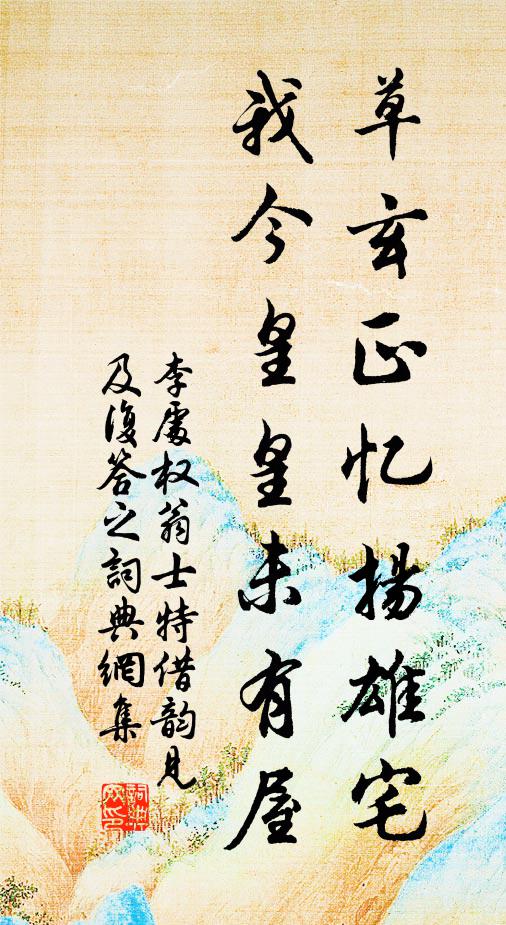 草玄正忆揚雄宅
我今皇皇未有屋
李處权翁士特借韵見
及復答之詞典網集